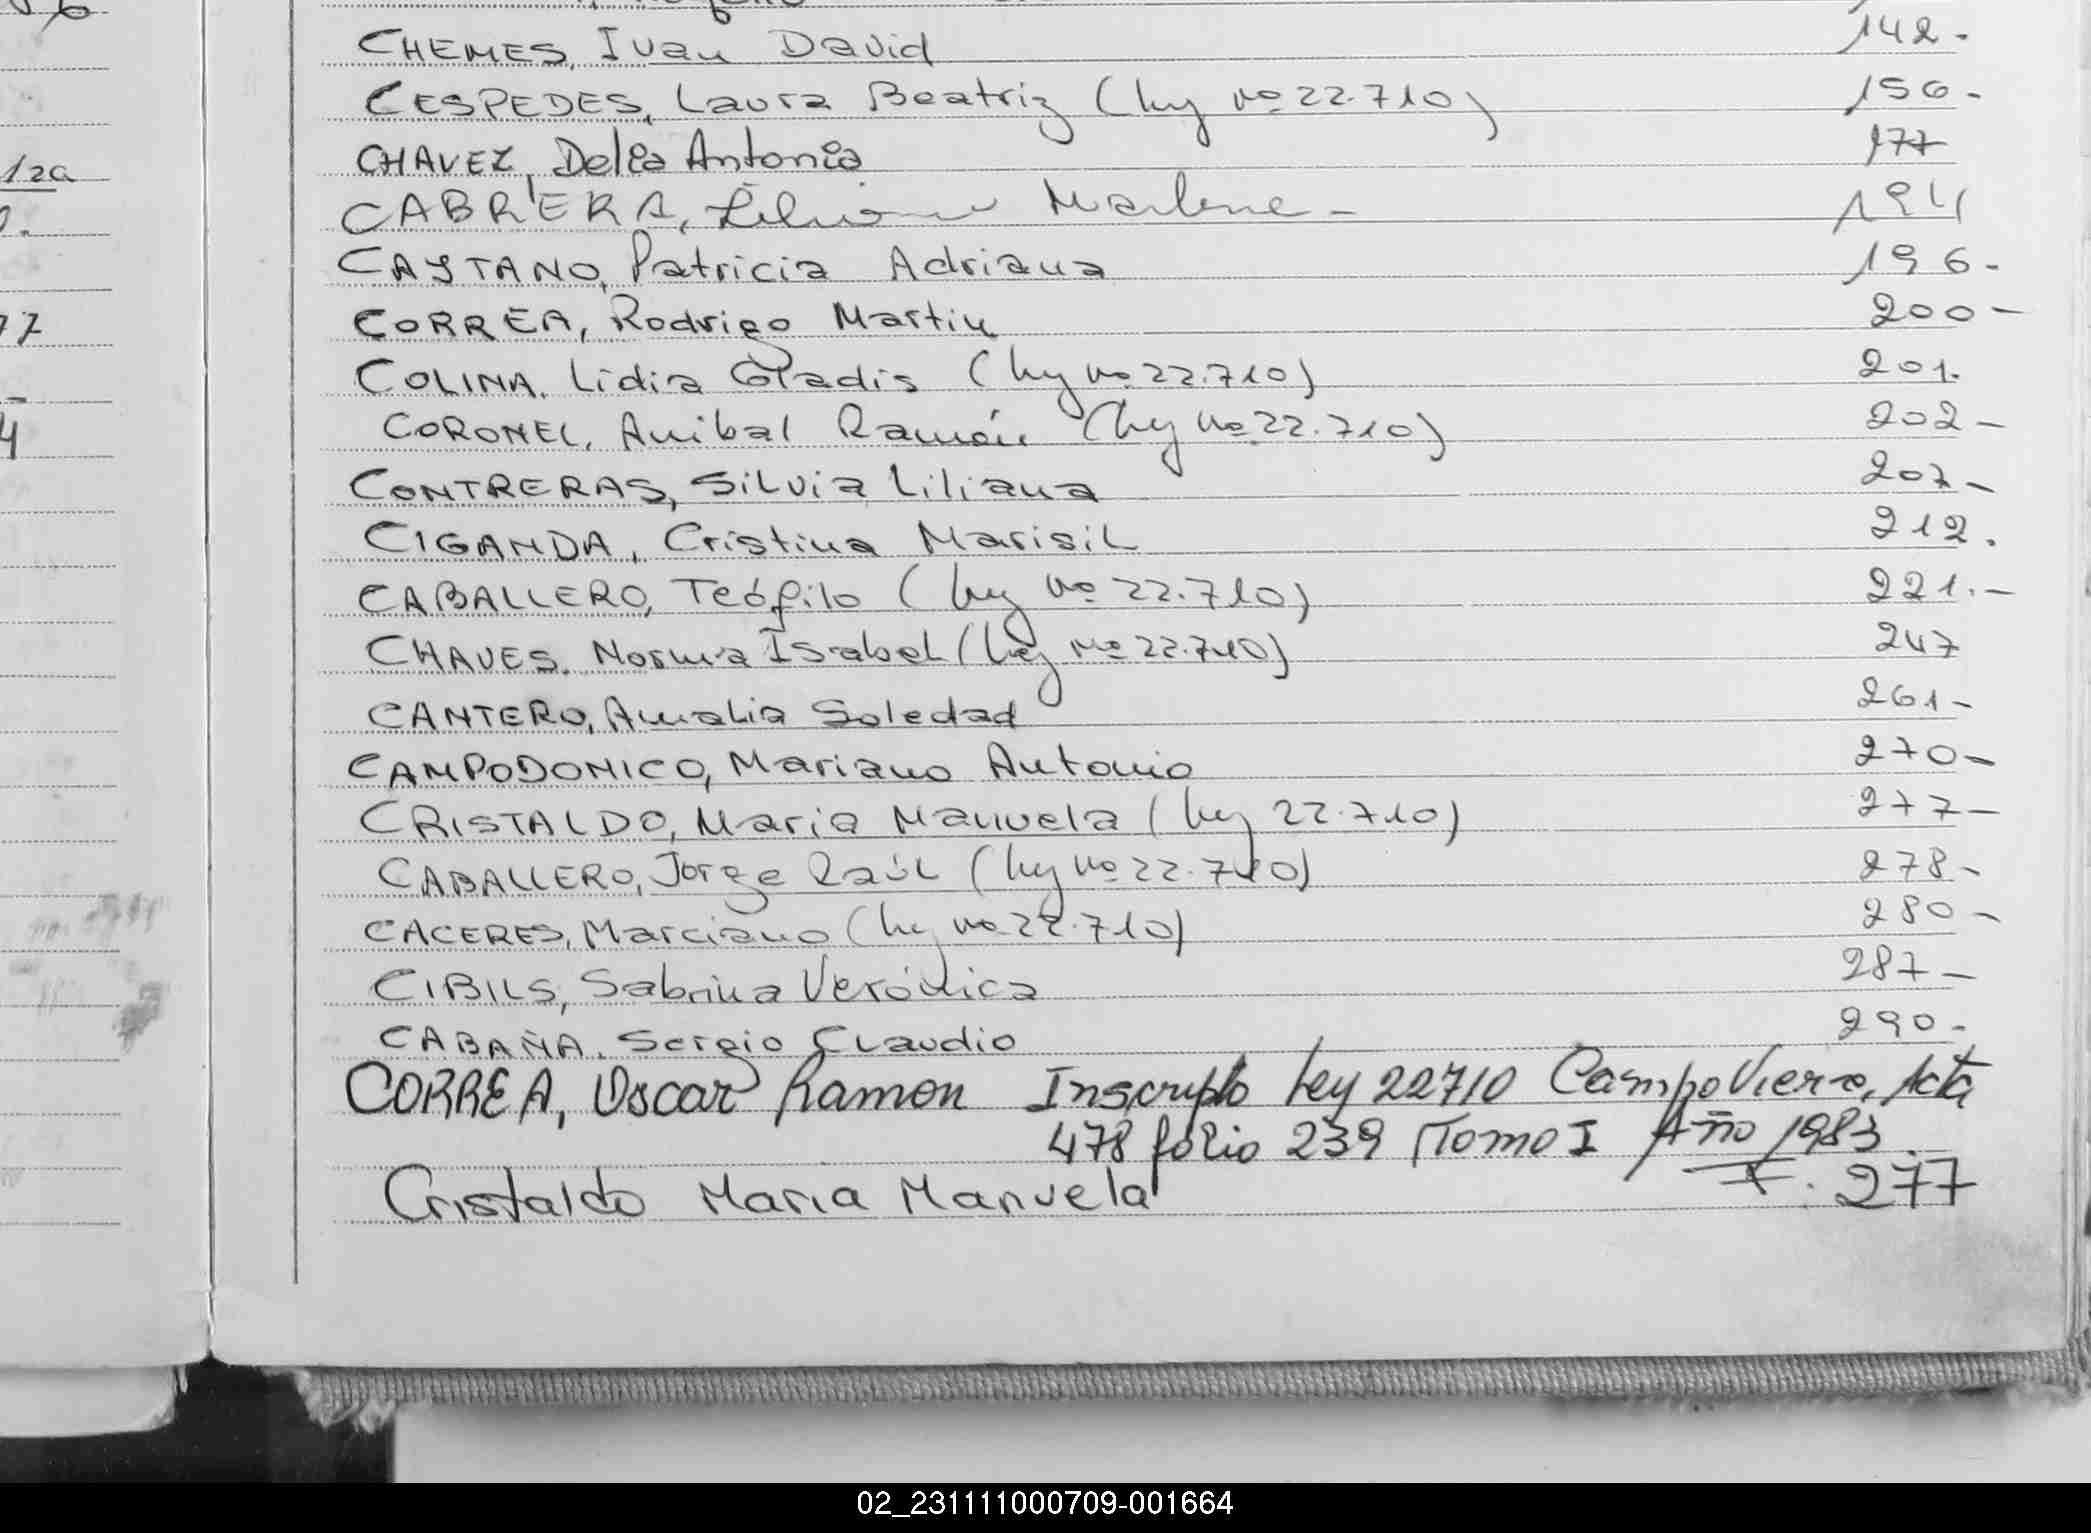 CHEMES, Ivan David 142.
CESPEDES, Laura Beatriz (Ley nº 22.710) 156.
CHAVEZ, Delia Antonia 177
1/2a
CABRERA, Marlene - 194
CAYTANO, Patricia Adriana 196.
CORREA, Rodrigo Martin 200 -
COLINA, Lidia Gladis (Ley nº 22.710) 201.
CORONEL, Anibal Ramón (Ley nº 22.710) 202 -
CONTRERAS, Silvia Liliana 207 -
CIGANDA, Cristina Marisil 212.
CABALLERO, Teófilo (Ley nº 22.710) 221. -
CHAVES, Norma Isabel (Ley nº 22.710) 247
CANTERO, Amalia Soledad 261 -
CAMPODONICO, Mariano Antonio 270 -
CRISTALDO, Maria Manuela (Ley 22.710) 277 -
CABALLERO, Jorge Raúl (Ley nº 22.710) 278 -
CACERES, Marciano (Ley nº 22.710) 280 -
CIBILS, Sabrina Verónica 287 -
CABAÑA, Sergio Claudio 290 -
CORREA, Oscar Ramon Inscripto Ley 22710 Campo Viera, Acta
478 folio 239 Tomo I Año 1983
Cristaldo Maria Manuela F. 277
02_231111000709-001664